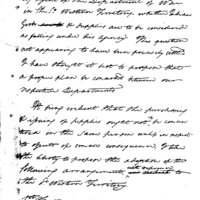 of Agent of the Department of War
in the N. Western Territory, whether Indian
Goods as supplies are to be considered
as falling under his agency. This question
not appearing to have been previously settled
I have thought it but to propose that
a proper plan be concerted between our
respective Departments
It being evident that the purchasing
& issuing of supplies ought not to be
in the same person and in respect
to objects of some consequence, I take
the liberty to propose the adoption of the
following arrangements
the N Western Territory